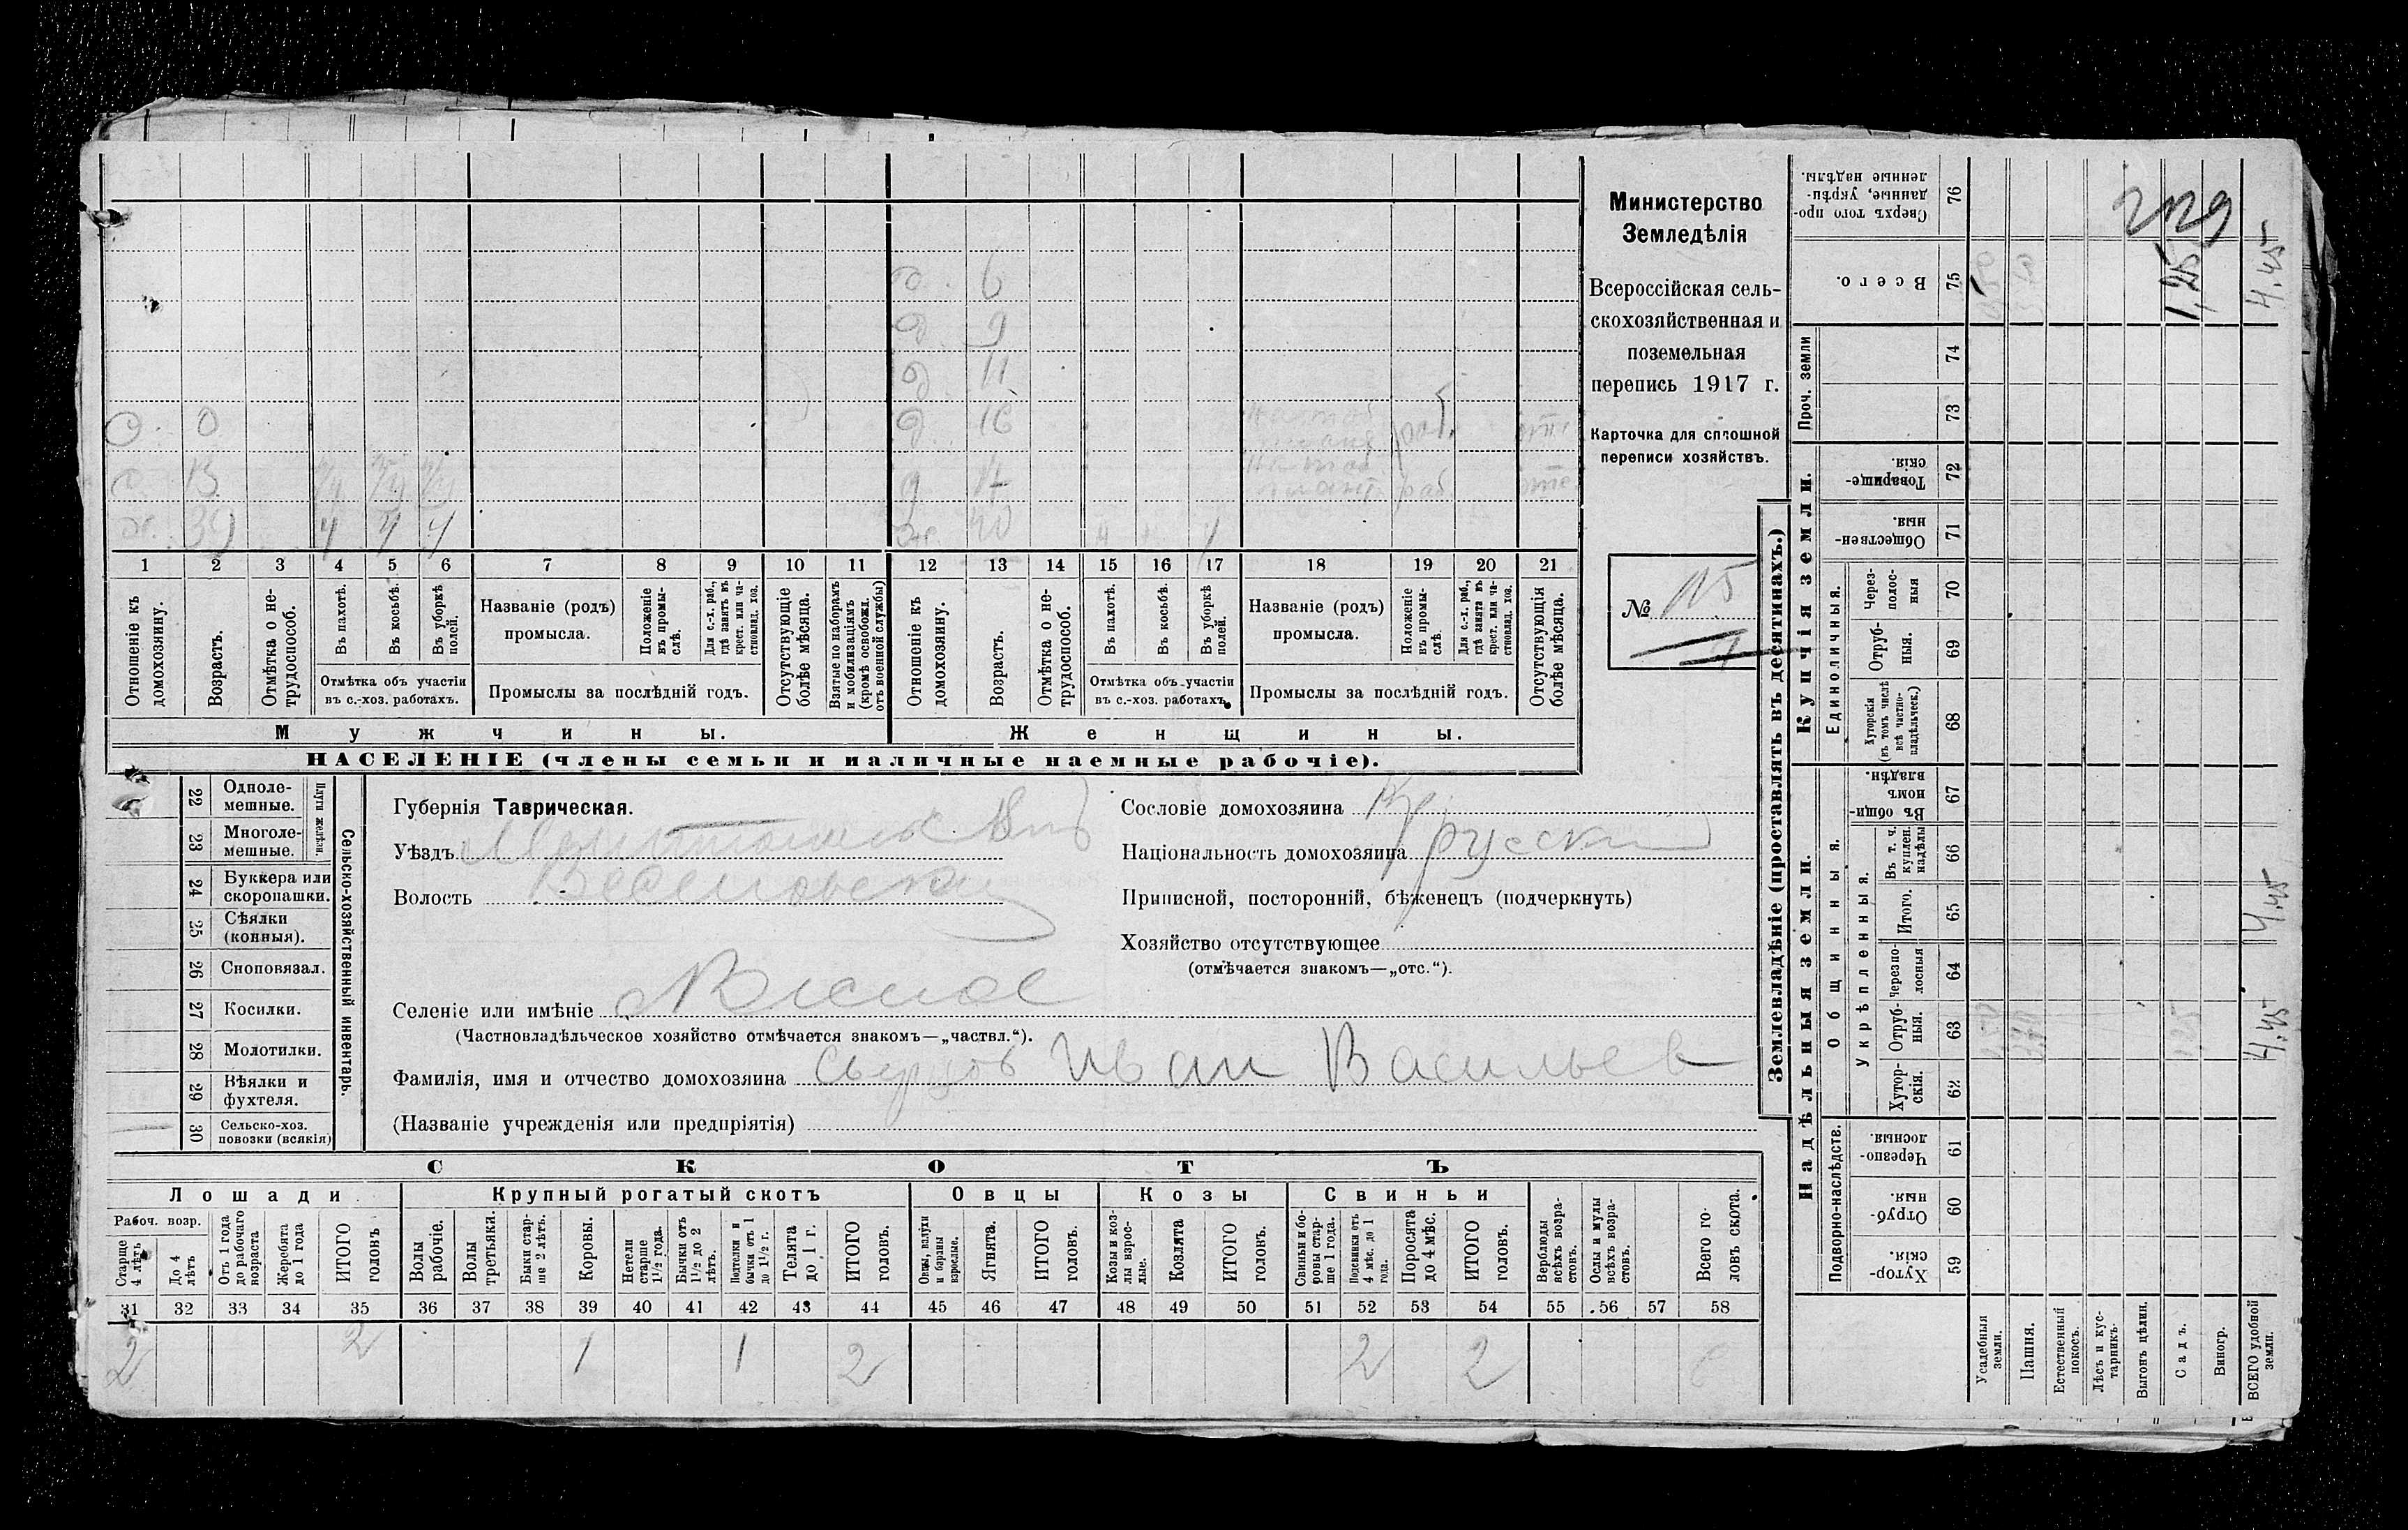 Министерство
Земледѣлія
Всероссійская сель-
скохозяйственная и
поземельная
перепись 1917 г.
Карточка для сплошной
переписи хозяйствъ.
№ 115
д. 6
д. 9
д. 11
с. 0 д. 16
с. 13 д. 17
ж. 40
1 2 3 4 5 6 7 8 9 10 11 12 13 14 15 16 17 18 19 20 21
Отношеніе къ домохозяину.
Возрастъ.
Отмѣтка о не-трудоспособ.
Въ пахотѣ.
Въ косьбѣ.
Въ уборкѣ полей.
Отмѣтка объ участіи
въ с.-хоз. работахъ.
Названіе (родъ)
промысла.
Положеніе въ промы-слѣ.
Для с.-х. раб., гдѣ занятъ въ крест. или ча-стновлад. хоз.
Промыслы за послѣдній годъ.
Отсутствующіе болѣе мѣсяца.
Взятые по наборамъ и мобилизаціямъ (кромѣ освобожд. отъ военной службы)
Отношеніе къ домохозяину.
Возрастъ.
Отмѣтка о не-трудоспособ.
Въ пахотѣ.
Въ косьбѣ.
Въ уборкѣ полей.
Отмѣтка объ участіи
въ с.-хоз. работахъ.
Названіе (родъ)
промысла.
Положеніе въ промы-слѣ.
Для с.-х. раб., гдѣ занята въ крест. или ча-стновлад. хоз.
Промыслы за послѣдній годъ.
Отсутствующія болѣе мѣсяца.
Мужчины. Женщины.
НАСЕЛЕНІЕ (члены семьи и наличные наемные рабочіе).
22 Одноле-мешные.
23 Многоле-мешные.
Плуги желѣзн.
24 Буккера или скоропашки.
25 Сѣялки (конныя).
26 Сноповязал.
27 Косилки.
28 Молотилки.
29 Вѣялки и фухтеля.
30 Сельско-хоз. повозки (всякія)
Сельско-хозяйственный инвентарь.
Губернія Таврическая.
Уѣздъ
Волость
Селеніе или имѣніе
(Частновладѣльческое хозяйство отмѣчается знакомъ—„частвл.“).
Фамилія, имя и отчество домохозяина Иван Васильев
(Названіе учрежденія или предпріятія)
Сословіе домохозяина Кр.
Національность домохозяина русский
Приписной, посторонній, бѣженецъ (подчеркнуть)
Хозяйство отсутствующее
(отмѣчается знакомъ—„отс.“).
СКОТЪ
Лошади Крупный рогатый скотъ Овцы Козы Свиньи
Рабоч. возр.
Старше 4 лѣтъ
До 4 лѣтъ
Отъ 1 года до рабочаго возраста
Жеребята до 1 года
ИТОГО головъ
Волы рабочіе.
Волы третьяки.
Быки стар-ше 2 лѣтъ.
Коровы.
Нетели старше 1½ года.
Бычки отъ 1½ до 2 лѣтъ.
Подтелки и бычки отъ 1 до 1½ г.
Телята до 1 г.
ИТОГО головъ.
Овцы, валухи и бараны взрослые.
Ягнята.
ИТОГО головъ.
Козы и коз-лы взрос-лые.
Козлята
ИТОГО головъ.
Свиньи и бо-ровы стар-ше 1 года.
Подсвинки отъ 4 мѣс. до 1 года.
Поросята до 4 мѣс.
ИТОГО головъ.
Верблюды всѣхъ возра-стовъ.
Ослы и мулы всѣхъ возра-стовъ.
Всего го-ловъ скота.
31 32 33 34 35 36 37 38 39 40 41 42 43 44 45 46 47 48 49 50 51 52 53 54 55 56 57 58
2 2 1 1 2 2 2 6
Землевладѣніе (проставлять въ десятинахъ.)
Купчія земли.
Надѣльныя земли.
76 Сверхъ того про-данные, укрѣп-ленные надѣлы.
75 Всего.
Проч. земли
74
73
72 Товарище-скія.
71 Обществен-ныя.
Единоличныя.
70 Через-полос-ныя
69 Отруб-ныя.
68 Хуторскія (въ томъ числѣ всѣ частно-владѣльческ.)
Общинныя.
67 Въ общин-номъ владѣн.
Укрѣпленныя.
66 Въ т. ч. куплен. надѣлы
65 Итого.
64 Черезпо-лосныя
63 Отруб-ныя.
62 Хутор-скія.
Подворно-наслѣдств.
61 Черезпо-лосныя.
60 Отруб-ныя.
59 Хутор-скія.
Усадебныя земли.
Пашня.
Естественный покосъ.
Лѣсъ и кус-тарникъ.
Выгонъ цѣлин.
Садъ.
Виногр.
ВСЕГО удобной земли.
1,25
4.45
4.45
4.45